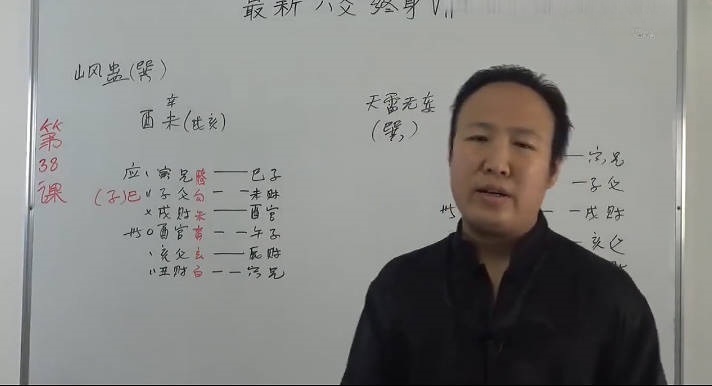 最新六爻终身V
山风蛊(巽)
辛
酉未(戌亥)
第
38
课
应、寅兄腾——巳子
(子)巳〃子父勾— —未财
×戌财朱——酉官
世○酉官青— —午子
、亥父玄——辰财
〃丑财白— —寅兄
天雷无妄
(巽)
——寅兄
—子父
世— —戌财
— —亥父
财